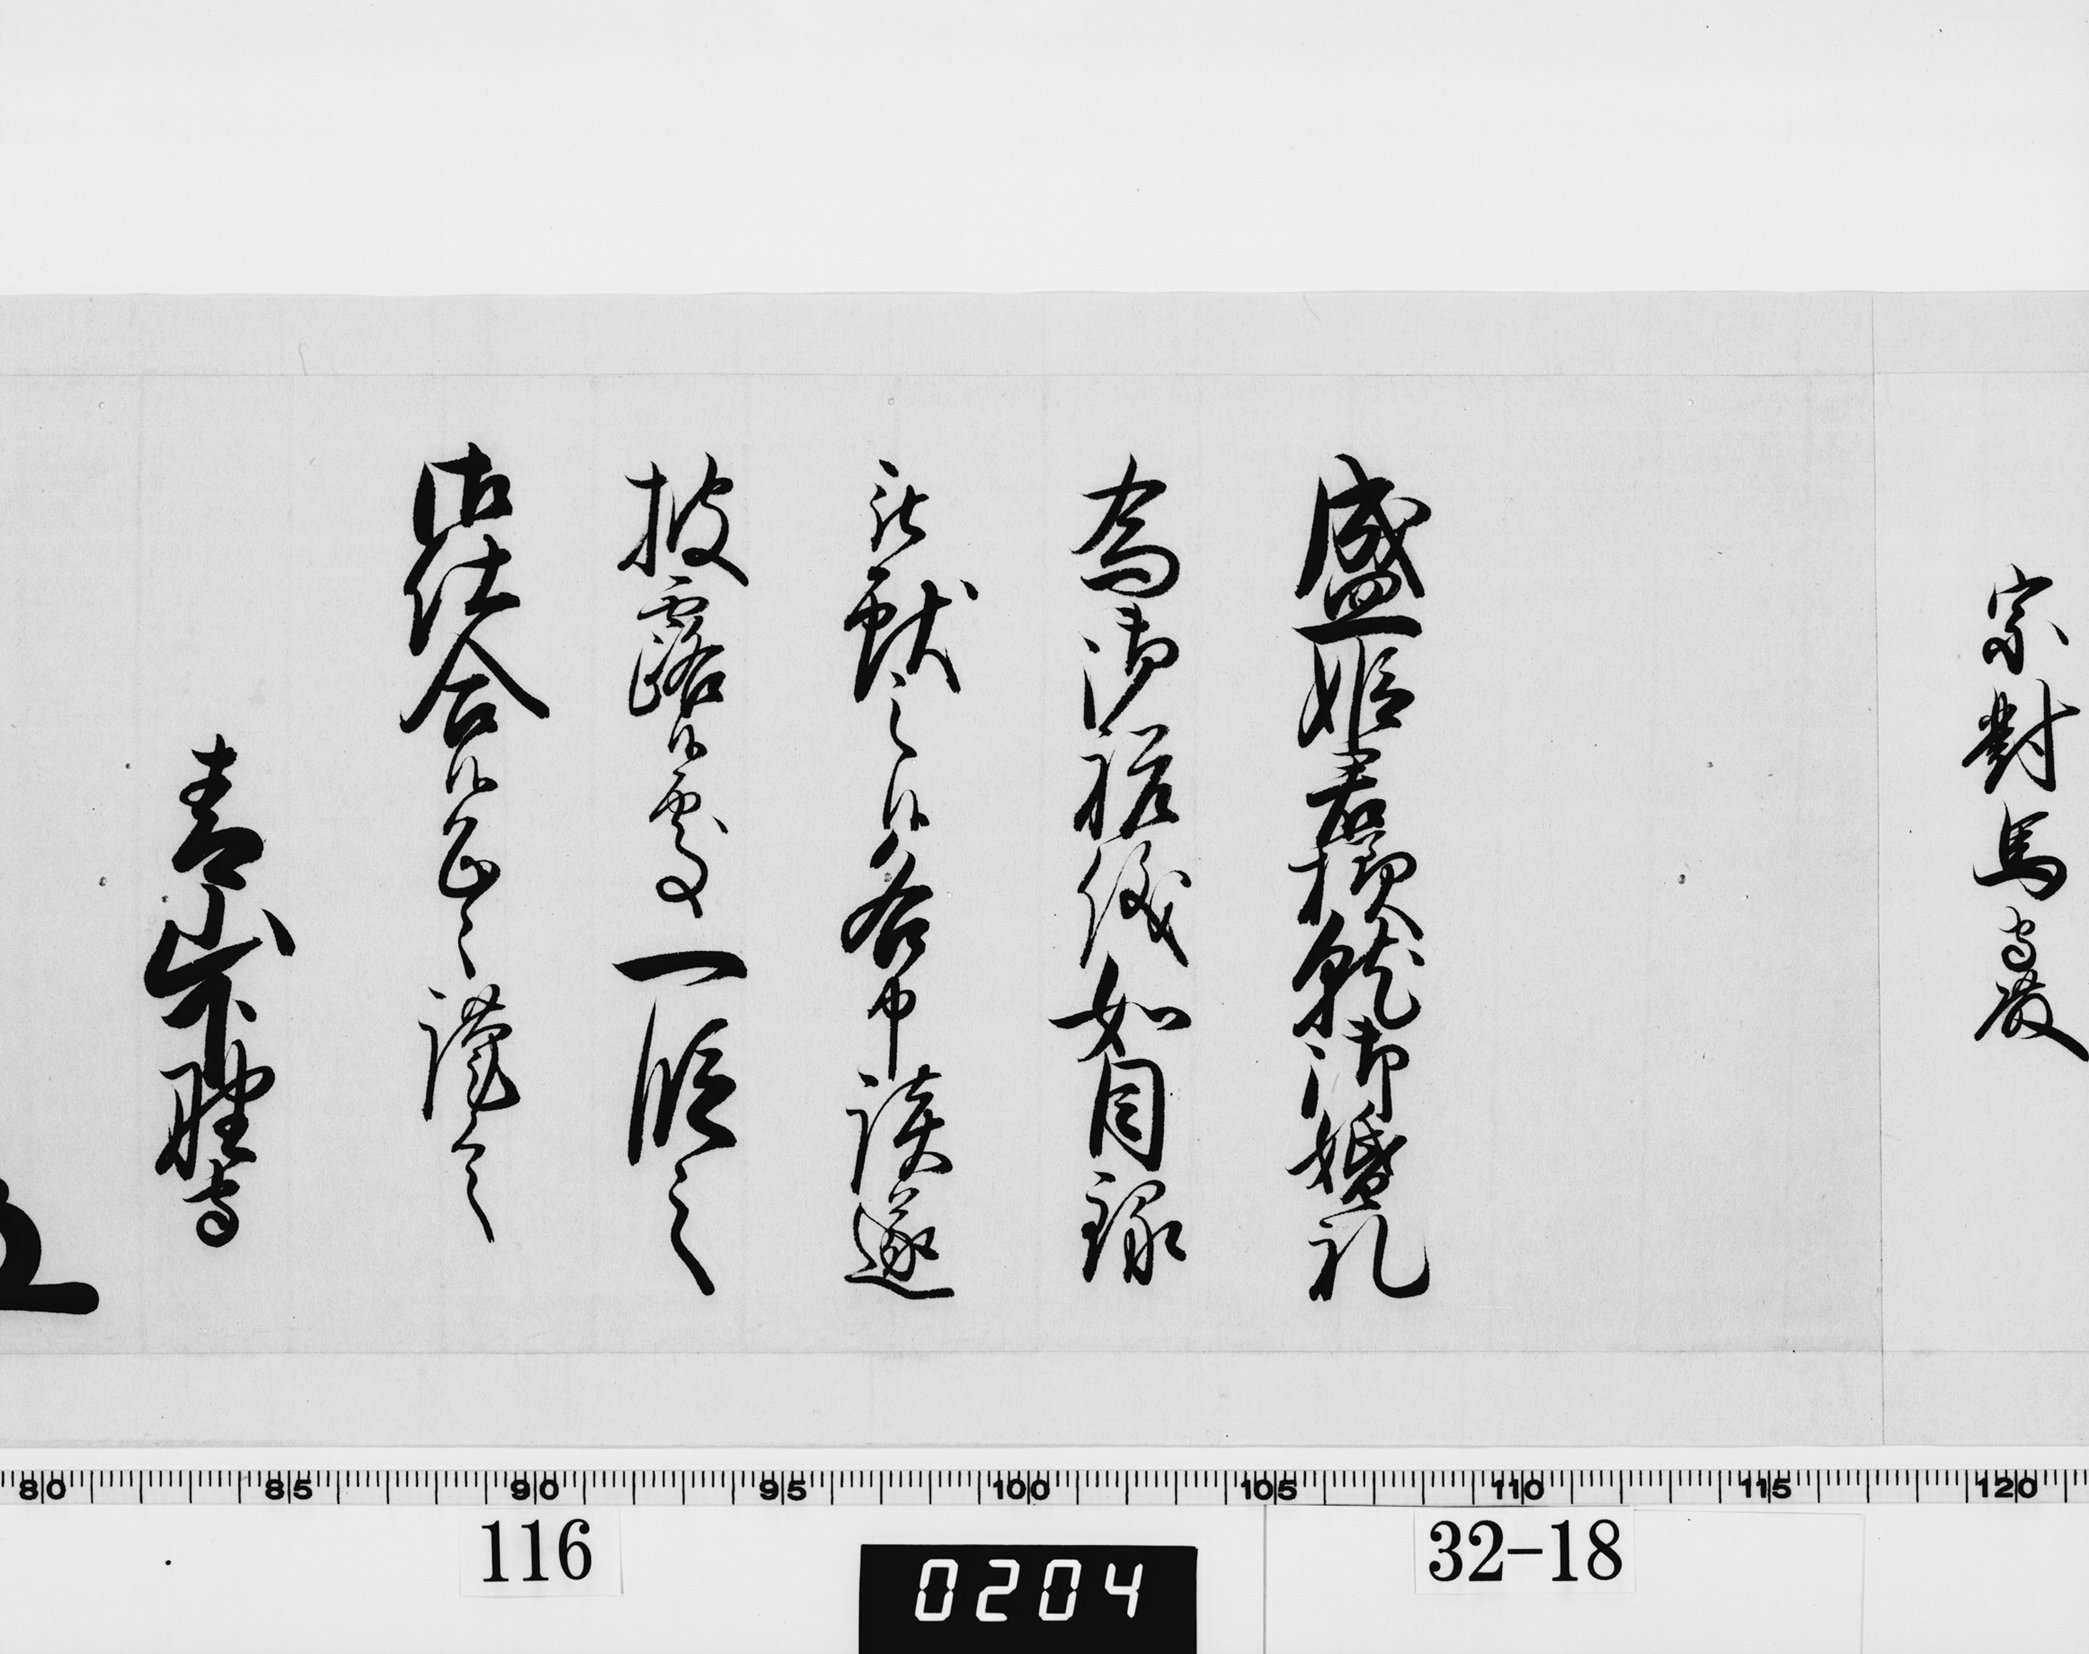 宗對馬守殿
盛姫君様就御婚礼
為御祝儀如目録
被献之候各申談遂
披露候處一段之
御仕合候恐々謹言
青山下野守
80 85 90 95 100 105 110 115 120
116
0204
32-18